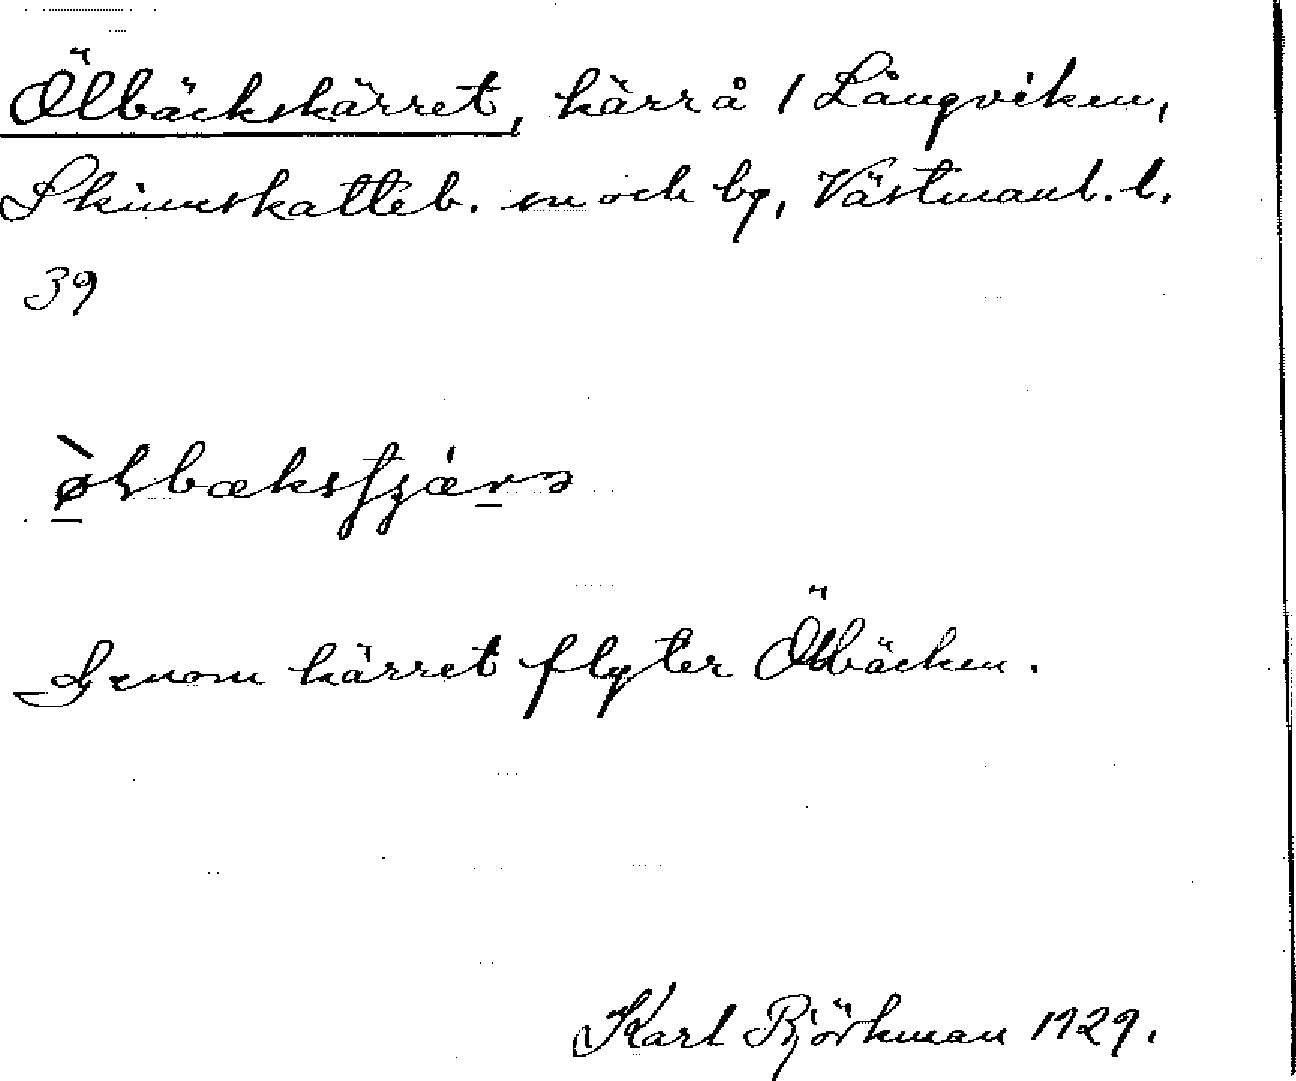 Ölbäckskärret, kärr å 1 Långviken,
Skinnskatteb. sn och by, Västmanl. l.
39
Genom kärret flyter Ölbäcken.
Karl Björkman 1929.